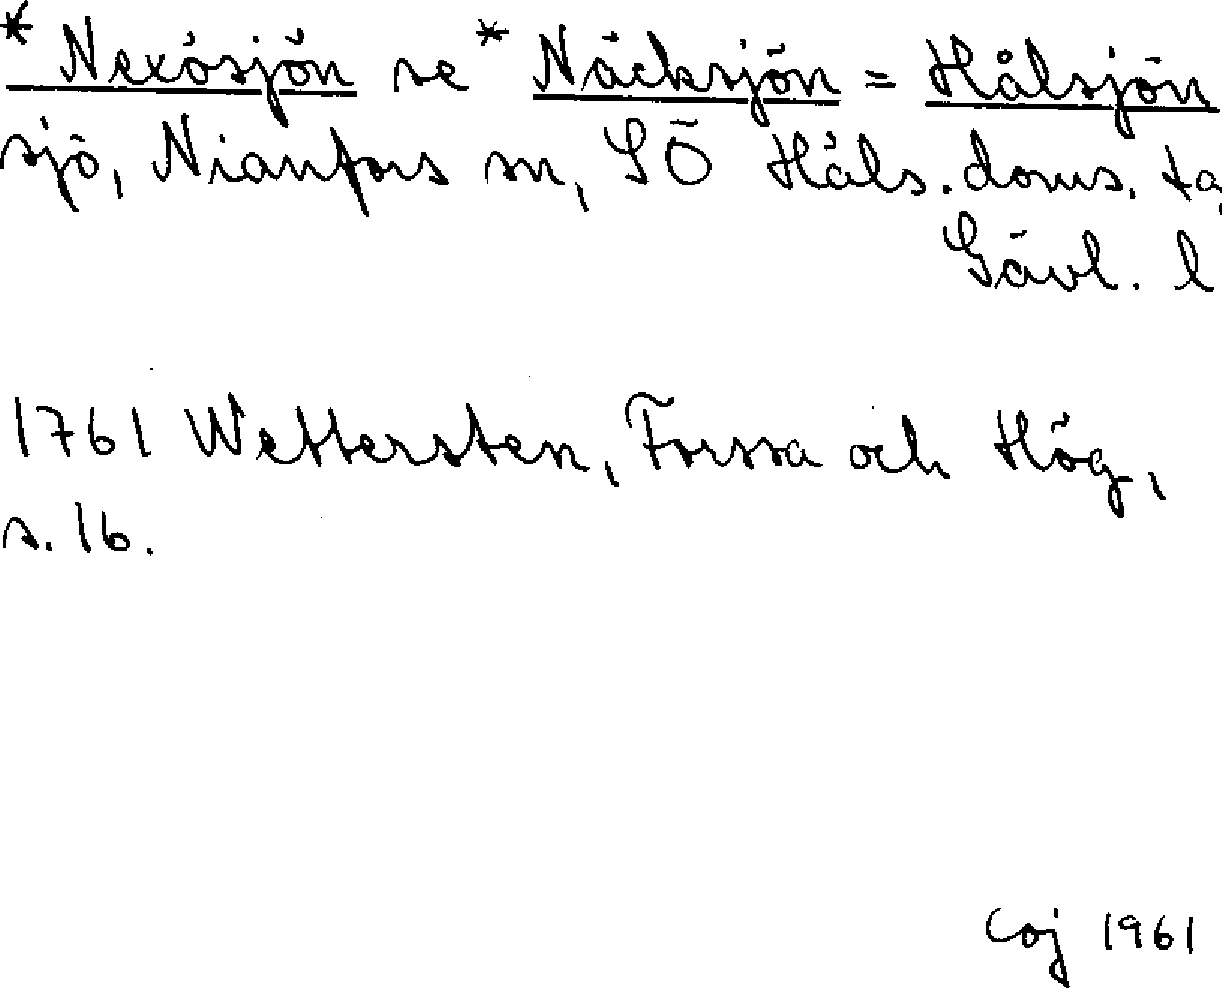 * Nexösjön se * Näcksjön = Hålsjön
sjö, Nianfors sn, SÖ Häls. doms. ta,
Gävl. l
1761 Wettersten, Forssa och Hög,
s. 16.
Coj 1961